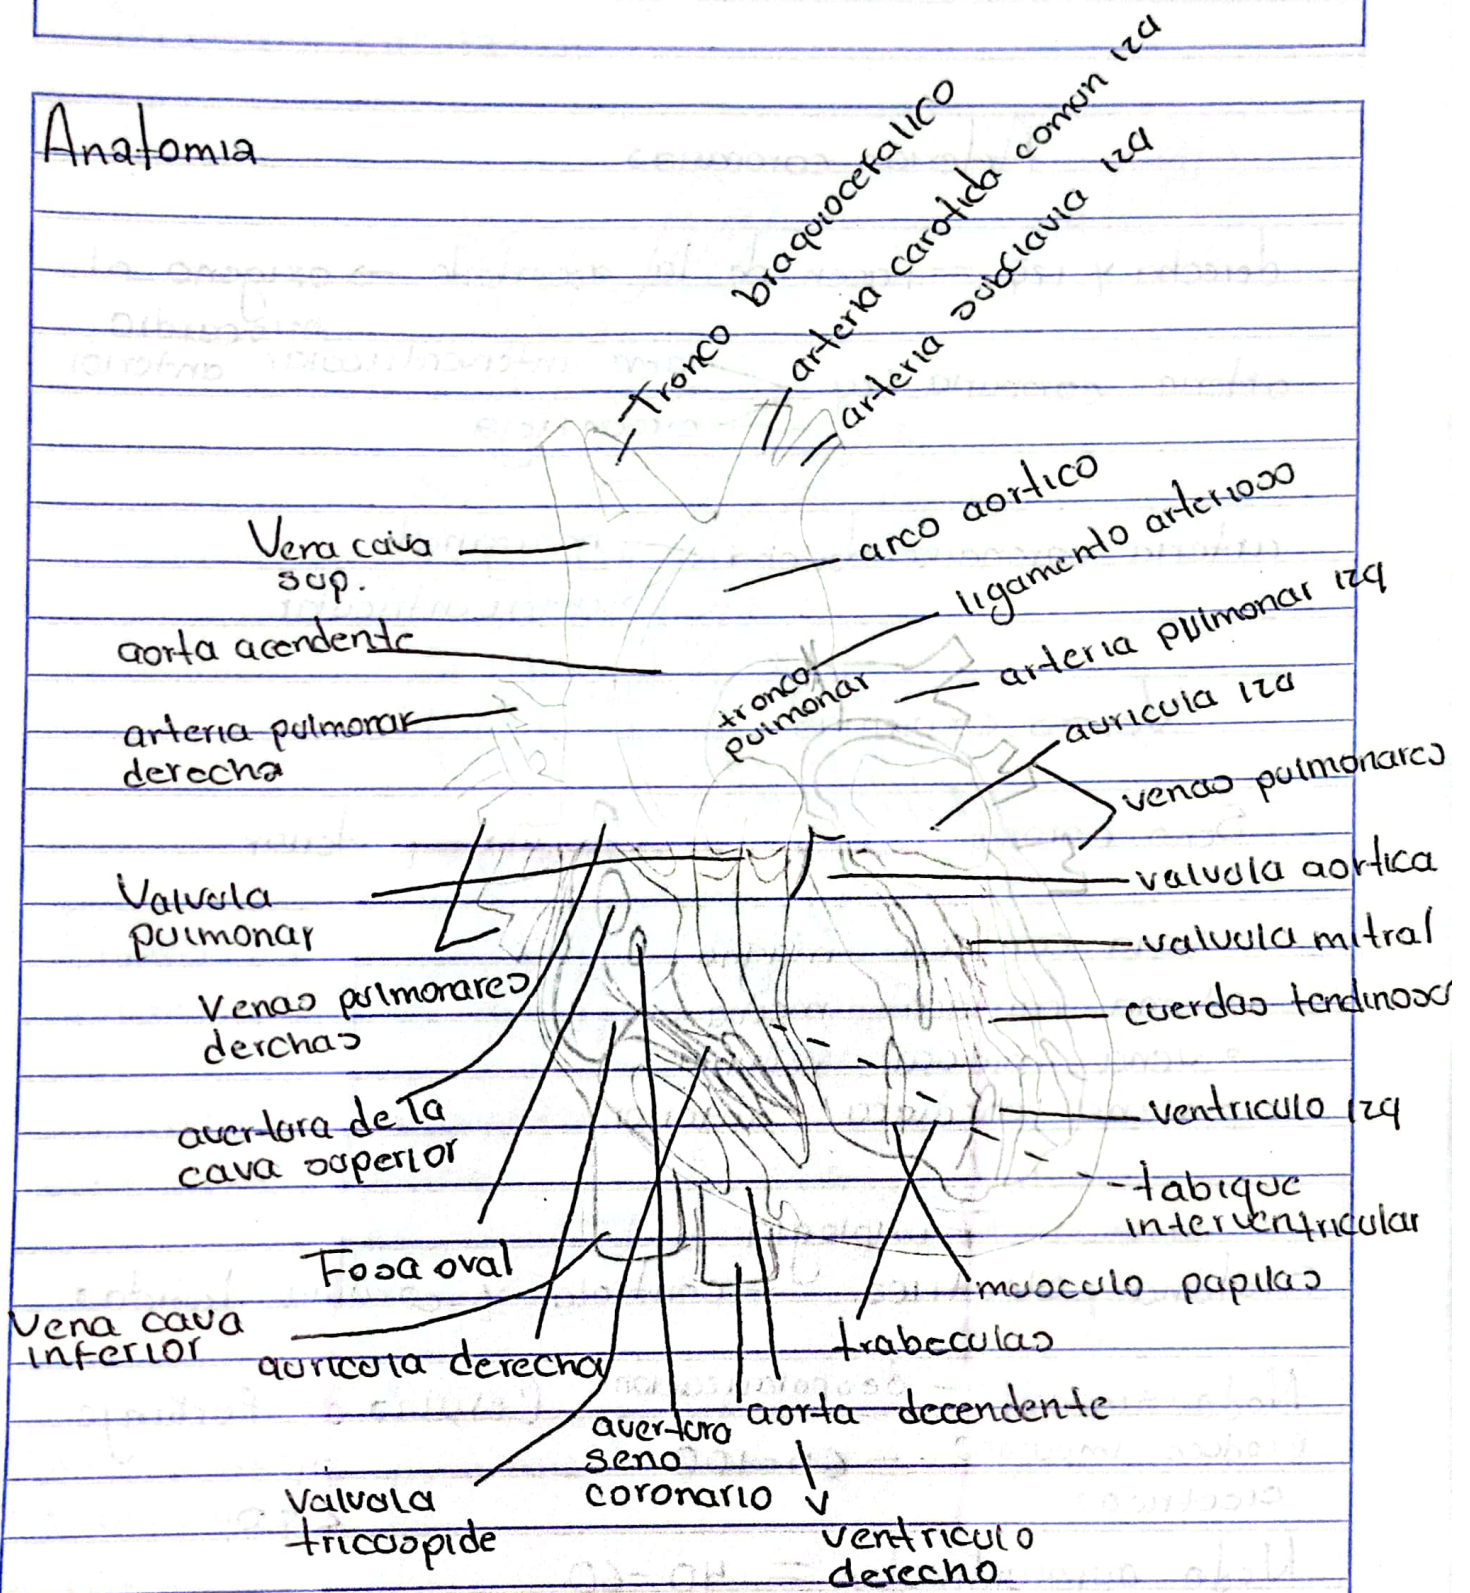 Anatomia
Tronco braquiocefalico
arteria carotida comun izq
arteria subclavia izq
Vena cava
sup.
arco aortico
ligamento arterioso
aorta acendente
arteria pulmonar izq
tronco
pulmonar
arteria pulmonar
derecha
auricula izq
venas pulmonares
Valvula
pulmonar
valvula aortica
valvula mitral
Venas pulmonares
derchas
cuerdas tendinosas
avertura de la
cava superior
ventriculo izq
tabique
interventricular
Fosa oval
musculo papilas
Vena cava
inferior
trabeculas
auricula derecha
avertura
seno
coronario
aorta decendente
Valvula
tricuspide
ventriculo
derecho